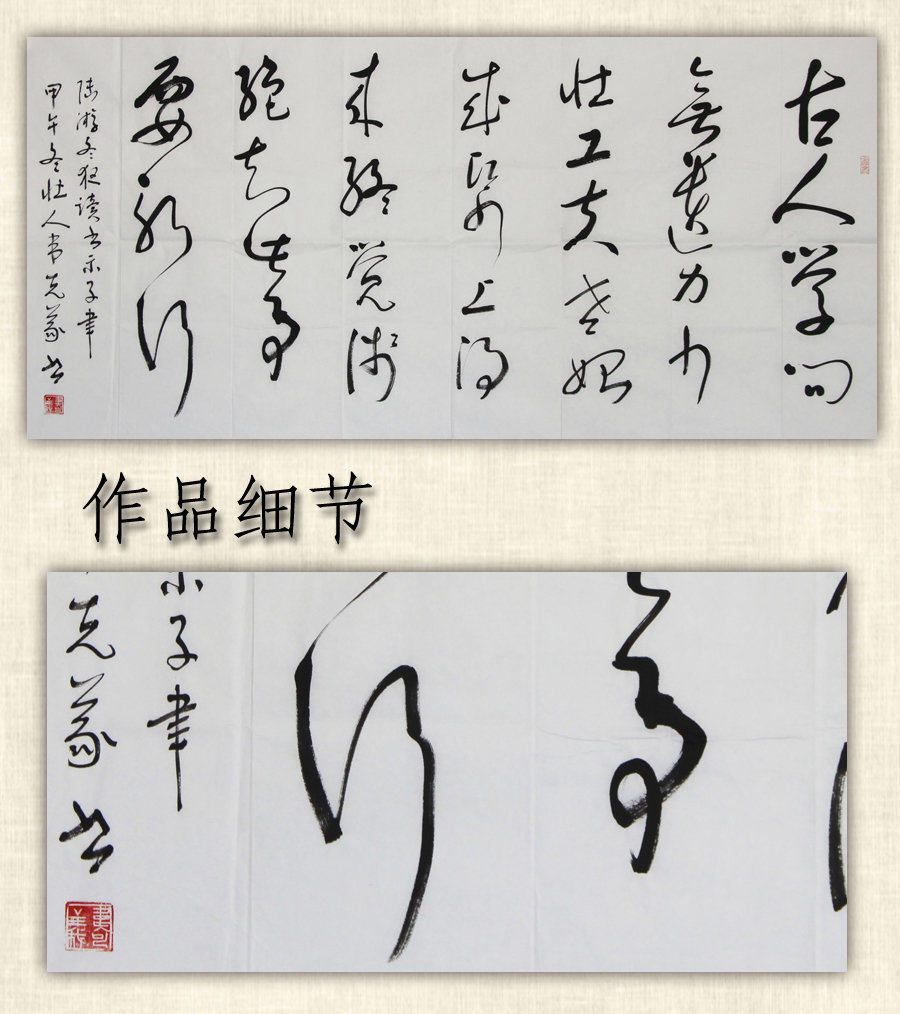 古人学问
無遗力少
壮工夫老始
成纸上得
来终觉浅
绝知此事
要躬行
陆游冬夜读书示子聿
甲午冬壮人韦克義书
作品细节
事
行
示子聿
克義书